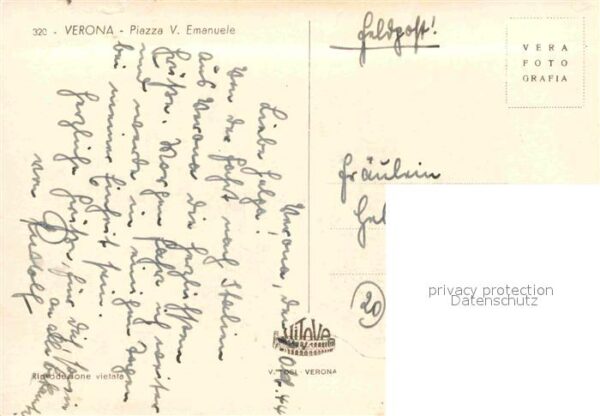 320 - VERONA - Piazza V. Emanuele
Feldpost!
VERA
FOTO
GRAFIA
Verona, den Okt. 44
Liebe Helga!
Von der Fahrt nach Italien
aus Verona die herzlichsten
Grüße. Morgen fahre ich weiter
und werde in einigen Tagen
bei meiner Einheit sein.
Herzliche Grüße, für dich
von Rudolf
an alle
Fräulein
Hel
privacy protection
Datenschutz
20
VITAVE
V. TOSI - VERONA
Riproduzione vietata